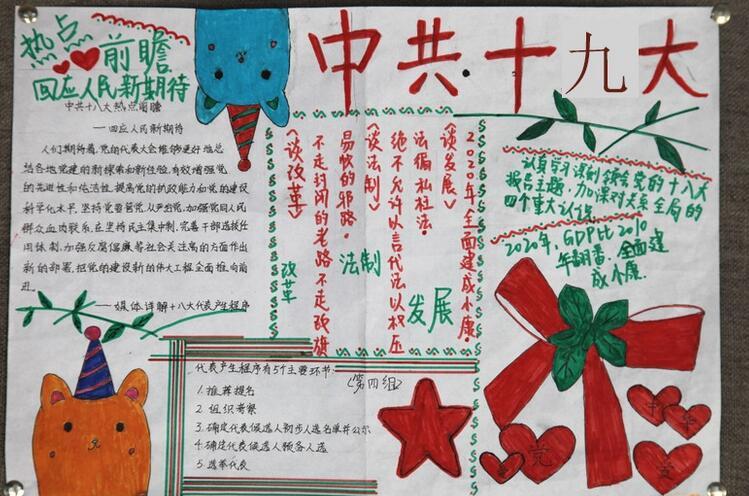 中共十九大
热点
前瞻
回应人民新期待
中共十八大热点前瞻
——回应人民新期待
人们期待着,党的代表大会能够更好地总
结各地党建的新探索和新经验,有效增强党
的先进性和纯洁性,提高党的执政能力和党的建设
科学化水平,坚持党要管党,从严治党,加强党同人民
群众血肉联系,在坚持民主集中制,完善干部选拔任
用体制,加强反腐倡廉等社会关注高的方面作出
新的部署,把党的建设新的伟大工程全面推向前
进。
——媒体详解十八大代表产生程序
《谈发展》
2020年全面建成小康。
发展
《谈法制》
绝不允许以言代法以权压
法徇私枉法。
法制
《谈改革》
不走封闭的老路不走改旗
易帜的邪路。
改革
认真学习深刻领会党的十八大
报告主题,加深对关系全局的
四个重大认识
2020年,GDP比2010
年翻番,全面建
成小康.
代表产生程序有5个主要环节:
1.推荐提名
2.组织考察
3.确定代表候选人初步人选名单并公示
4.确定代表候选人预备人选
5.选举代表
(第四组)
党